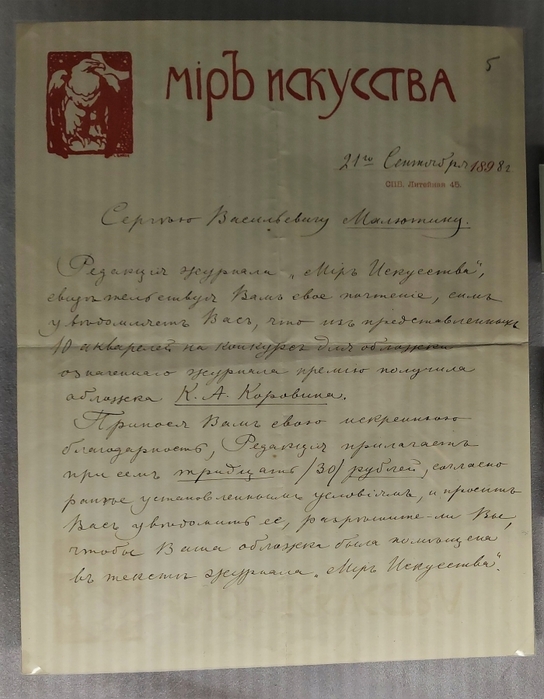 5
МІРЪ ИСКУССТВА
21го Сентября 1898 г
СПБ. Литейная 45.
Сергѣю Васильевичу Малютину.
Редакція журнала „Міръ Искусства",
свидѣтельствуя Вамъ свое почтеніе, симъ
увѣдомляетъ Васъ, что изъ представленныхъ
10 акварелей на конкурсъ для обложки
означеннаго журнала премію получила
обложка К. А. Коровина.
Принося Вамъ свою искреннюю
благодарность, Редакція прилагаетъ
при семъ тридцать /30/ рублей, согласно
ранѣе установленнымъ условіямъ, и проситъ
Васъ увѣдомить её, разрѣшите-ли Вы,
чтобы Ваша обложка была помѣщена
въ текстѣ журнала „Міръ Искусства".